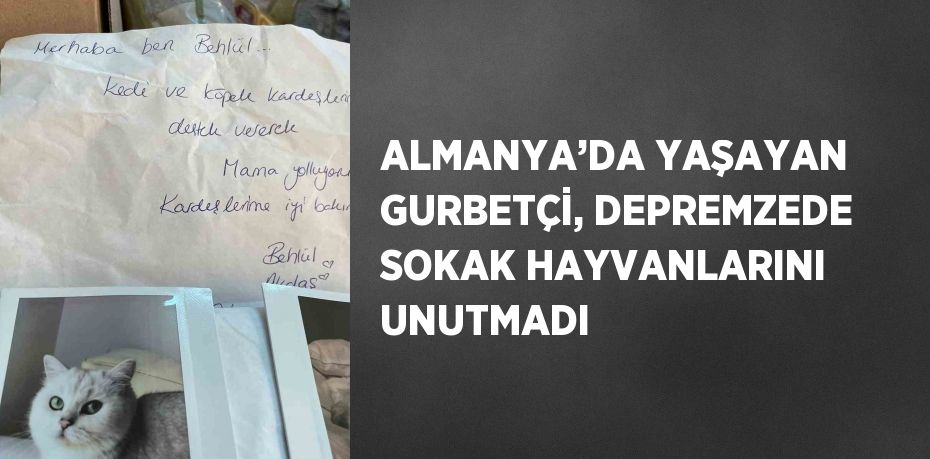 Merhaba ben Behlül...
Kedi ve köpek kardeşlerim
destek vererek
Mama yolluyorum
Kardeşlerime iyi bakın
Behlül
Akdaş
ALMANYA’DA YAŞAYAN
GURBETÇİ, DEPREMZEDE
SOKAK HAYVANLARINI
UNUTMADI